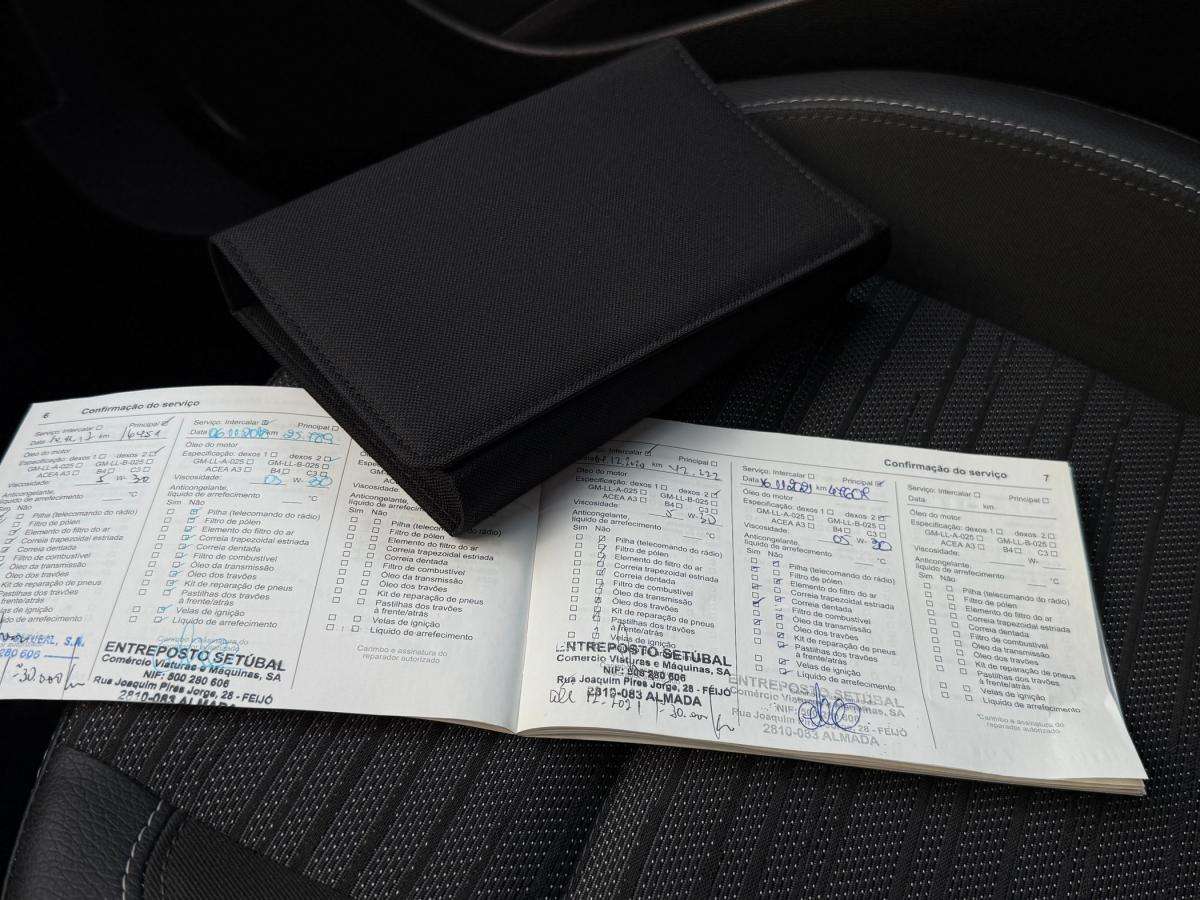 6 Confirmação do serviço
Serviço: Intercalar Principal
Data km
Óleo do motor
Especificação: dexos 1 dexos 2
GM-LL-A-025 GM-LL-B-025
ACEA A3 B4 C3
Viscosidade: 5 W- 30
Anticongelante,
líquido de arrefecimento °C
Sim Não
Pilha (telecomando do rádio)
Filtro de pólen
Elemento do filtro do ar
Correia trapezoidal estriada
Correia dentada
Filtro de combustível
Óleo da transmissão
Óleo dos travões
Kit de reparação de pneus
Pastilhas dos travões
à frente/atrás
Velas de ignição
Líquido de arrefecimento
280 606
30.000
Serviço: Intercalar Principal
Data km
Óleo do motor
Especificação: dexos 1 dexos 2
GM-LL-A-025 GM-LL-B-025
ACEA A3 B4 C3
Viscosidade: 05 W- 30
Anticongelante,
líquido de arrefecimento °C
Sim Não
Pilha (telecomando do rádio)
Filtro de pólen
Elemento do filtro do ar
Correia trapezoidal estriada
Correia dentada
Filtro de combustível
Óleo da transmissão
Óleo dos travões
Kit de reparação de pneus
Pastilhas dos travões
à frente/atrás
Velas de ignição
Líquido de arrefecimento
ENTREPOSTO SETÚBAL
Comércio Viaturas e Máquinas, SA
NIF: 500 280 606
Rua Joaquim Pires Jorge, 28 - FEIJÓ
2810-083 ALMADA
Anticongelante,
líquido de arrefecimento
Sim Não
Pilha (telecomando do rádio)
Filtro de pólen
Elemento do filtro do ar
Correia trapezoidal estriada
Correia dentada
Filtro de combustível
Óleo da transmissão
Óleo dos travões
Kit de reparação de pneus
Pastilhas dos travões
à frente/atrás
Velas de ignição
Líquido de arrefecimento
Carimbo e assinatura do
reparador autorizado
Confirmação do serviço 7
Intercalar Principal
km
Óleo do motor
Especificação: dexos 1 dexos 2
GM-LL-A-025 GM-LL-B-025
ACEA A3 B4 C3
Viscosidade: 5 W- 30
Anticongelante,
líquido de arrefecimento °C
Sim Não
Pilha (telecomando do rádio)
Filtro de pólen
Elemento do filtro do ar
Correia trapezoidal estriada
Correia dentada
Filtro de combustível
Óleo da transmissão
Óleo dos travões
Kit de reparação de pneus
Pastilhas dos travões
à frente/atrás
Velas de ignição
ENTREPOSTO SETÚBAL
Comércio Viaturas e Máquinas, SA
NIF: 500 280 606
Rua Joaquim Pires Jorge, 28 - FEIJÓ
2810-083 ALMADA
30.000
Serviço: Intercalar Principal
Data 16.11.2021 km
Óleo do motor
Especificação: dexos 1 dexos 2
GM-LL-A-025 GM-LL-B-025
ACEA A3 B4 C3
Viscosidade: 05 W- 30
Anticongelante,
líquido de arrefecimento °C
Sim Não
Pilha (telecomando do rádio)
Filtro de pólen
Elemento do filtro do ar
Correia trapezoidal estriada
Correia dentada
Filtro de combustível
Óleo da transmissão
Óleo dos travões
Kit de reparação de pneus
Pastilhas dos travões
à frente/atrás
Velas de ignição
Líquido de arrefecimento
ENTREPOSTO SETÚBAL
Comércio Viaturas e Máquinas, SA
NIF: 606
Rua Joaquim 28 - FEIJÓ
2810-083 ALMADA
Serviço: Intercalar Principal
Data km
Óleo do motor
Especificação: dexos 1 dexos 2
GM-LL-A-025 GM-LL-B-025
ACEA A3 B4 C3
Viscosidade: W-
Anticongelante,
líquido de arrefecimento °C
Sim Não
Pilha (telecomando do rádio)
Filtro de pólen
Elemento do filtro do ar
Correia trapezoidal estriada
Correia dentada
Filtro de combustível
Óleo da transmissão
Óleo dos travões
Kit de reparação de pneus
Pastilhas dos travões
à frente/atrás
Velas de ignição
Líquido de arrefecimento
Carimbo e assinatura do
reparador autorizado